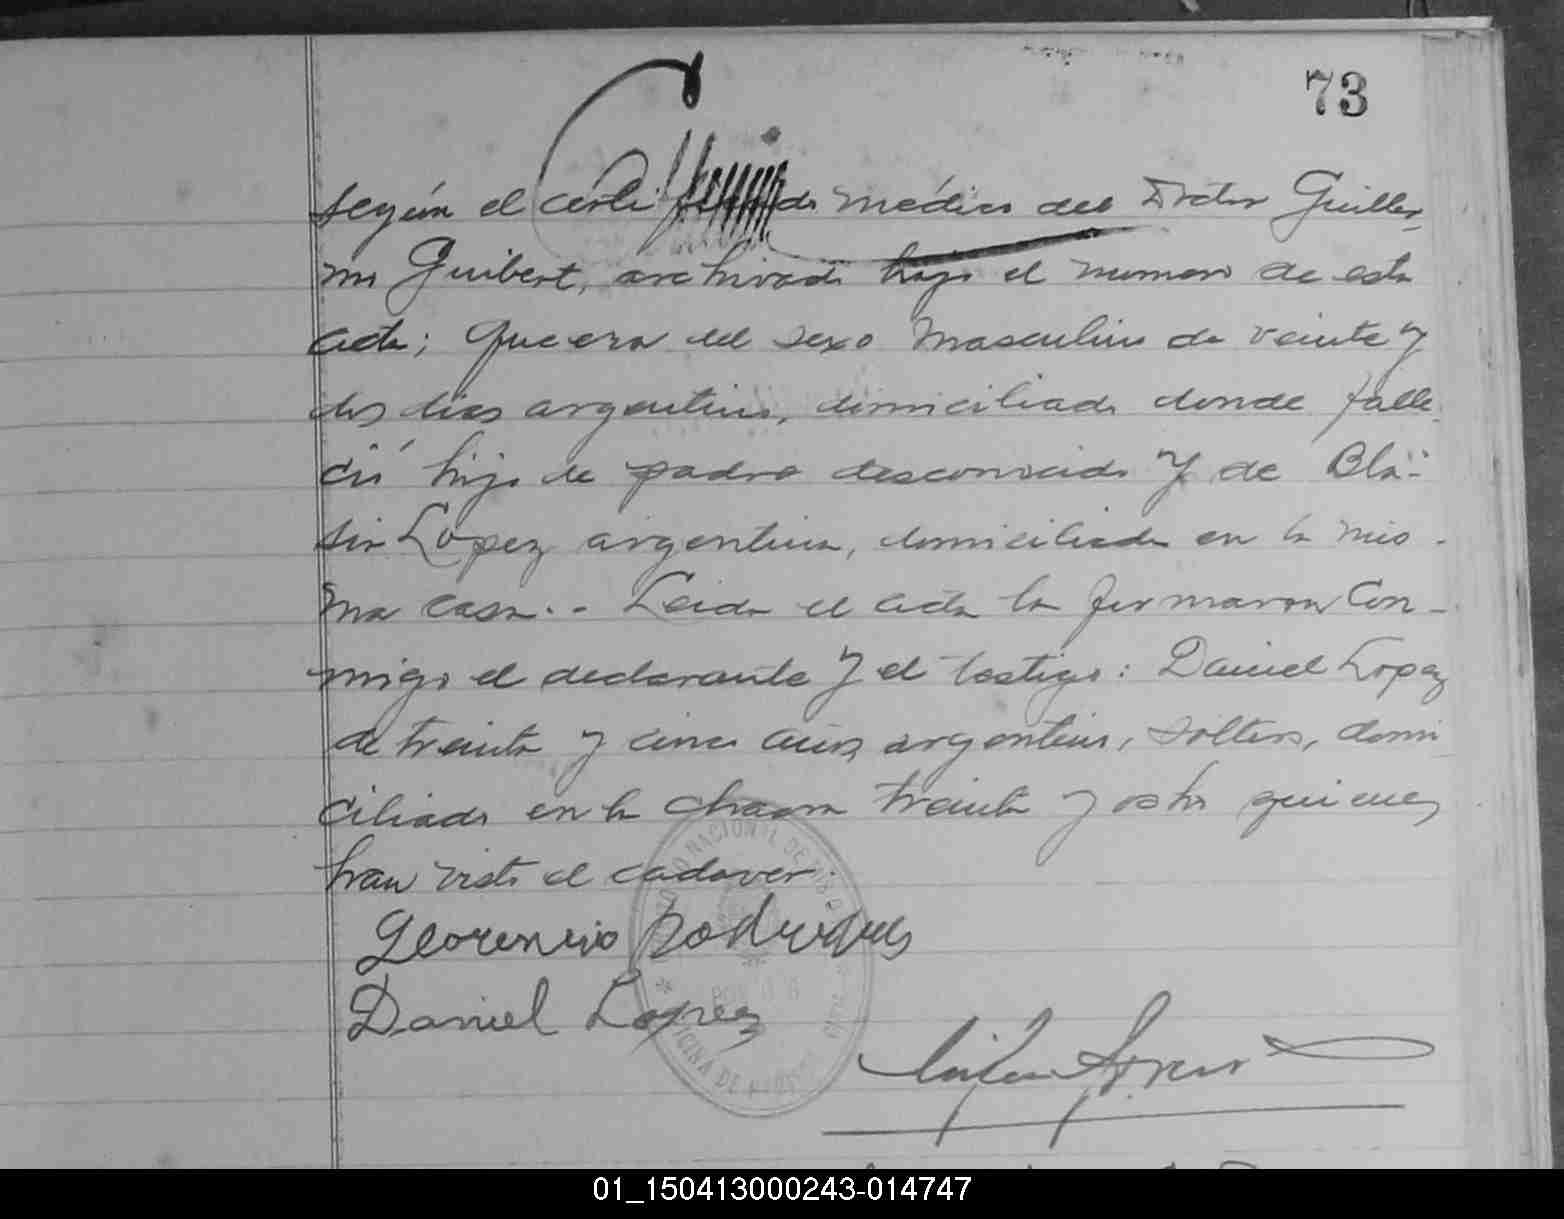 73
según el certificado médico del Doctor Guiller-
mo Guibert, archivado bajo el numero de esta
acta; Que era del sexo masculino de veinte y
dos dias argentino, domiciliado donde falle-
ció hijo de padre desconocido y de Bla-
sia Lopez argentina, domiciliada en la mis-
ma casa.- Leida el acta la firmaron con-
migo el declarante y el testigo: Daniel Lopez
de treinta y cinco años, argentino, soltero, domi
ciliado en la chacra treinta y ocho quienes
han visto el cadaver.
Florencio Rodrigues
Daniel Lopez
01_150413000243-014747